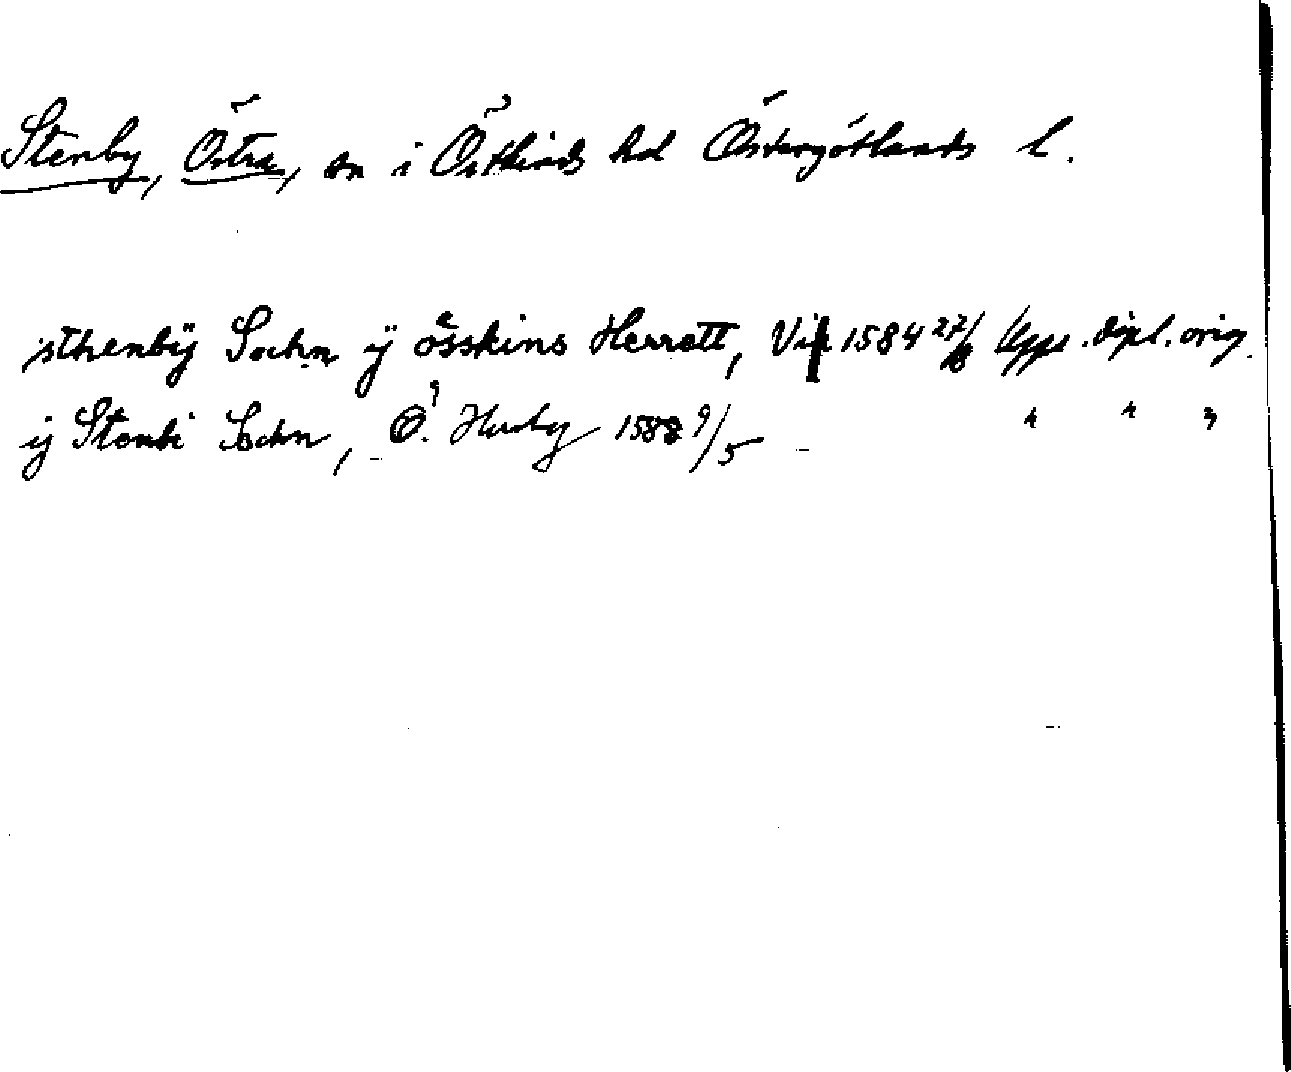 Stenby, Östra, sn i Östkinds hd Östergötlands l.
sthenbÿ Sochn ÿ össkins Herrett, Vip 1584 27/ Upps. dipl. orig.
ij Stenbi Sochn, Ö. Husby 1588 9/5 " " "